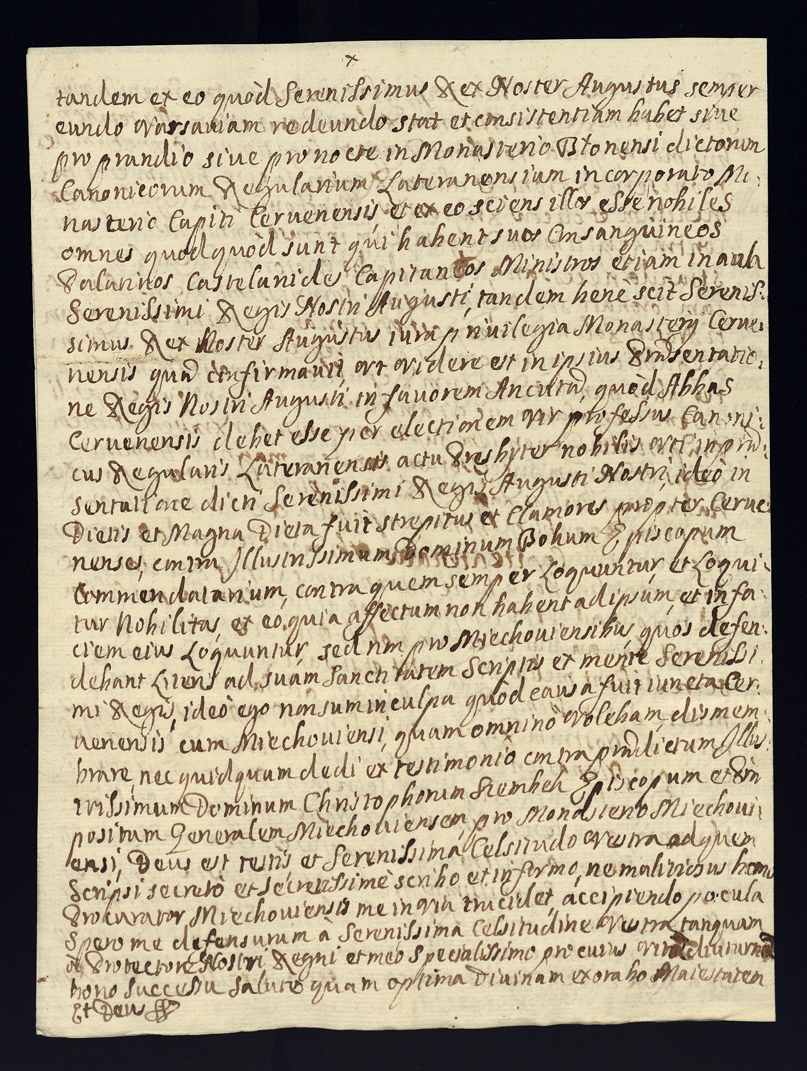 tandem et eo quòd Serenissimus Rex Noster Augustus semper
eundo Varsaviam redeundo stat et consistentiam habet sive
pro prandio sive pro nocte in Monasterio Blonensi dictorum
Canonicorum Regularium Lateranensium incorporato Mo-
nasterio Capiti Cervenensis et ex eo sciens illos esse nobiles
omnes quodquod sunt qui habent suos Consanguineos
Palatinos Castelanides Capitaneos Ministros etiam in aula
Serenissimi Regis Nostri Augusti, tandem benè scit Serenis:
simus Rex Noster Augustus iura privilegia Monasterij Cerve:
nensis quae confirmavit, ut videre est in ipsius Praesentatio:
ne Regis Nostri Augusti in favorem quòd Abbas
Cervenensis debet esse per electionem vir professus Canoni:
cus Regularis Lateranensis actu Presbyter nobilis in prae:
sentatione dicti Serenissimi Regis Augusti Nostri, ideò in
Dietis et Magna Dieta fuit strepitus et Clamores propter Cerve
nenses, contra Illustrissimum Dominum Bohum Episcopum
Commendatarium, contra quem semper Loquuntur, et Loqui:
tur Nobilitas, et eo, quia affectum non habent ad ipsum, et in fa:
ciem eius Loquuntur, sed non pro Miechoviensibus, quos defen:
debant Litens ad suam Sanctitatem Scriptis et mente Serenissi
mi Regis, ideò ego non sum in culpa quòd causa fuit iuncta Cer:
venensis cum Miechoviensi, quam omninò volebam dismem:
brare, nec quidquam dedi ex testimonio contra praedictum Illus:
trissimum Dominum Christophorum Szembek Episcopum et Prae
positum Generalem Miechoviensem, pro Monasterio Miechovi:
ensi, Deus est testis et Serenissima Celsitudo Vestra ad quem
Scripsi secretò et secretissimè scribo et informo, ne malitiosus homo
Procurator Miechoviensis me in via trucidet, accipiendo pocula
Spero me defensurum à Serenissima Celsitudine Vestra tanquam
à Protectore Nostri Regni et meo specialissimo pro cuius vita diuturna
bono successu salute quam optima Divinam exorabo Maiestatem
Et Deus